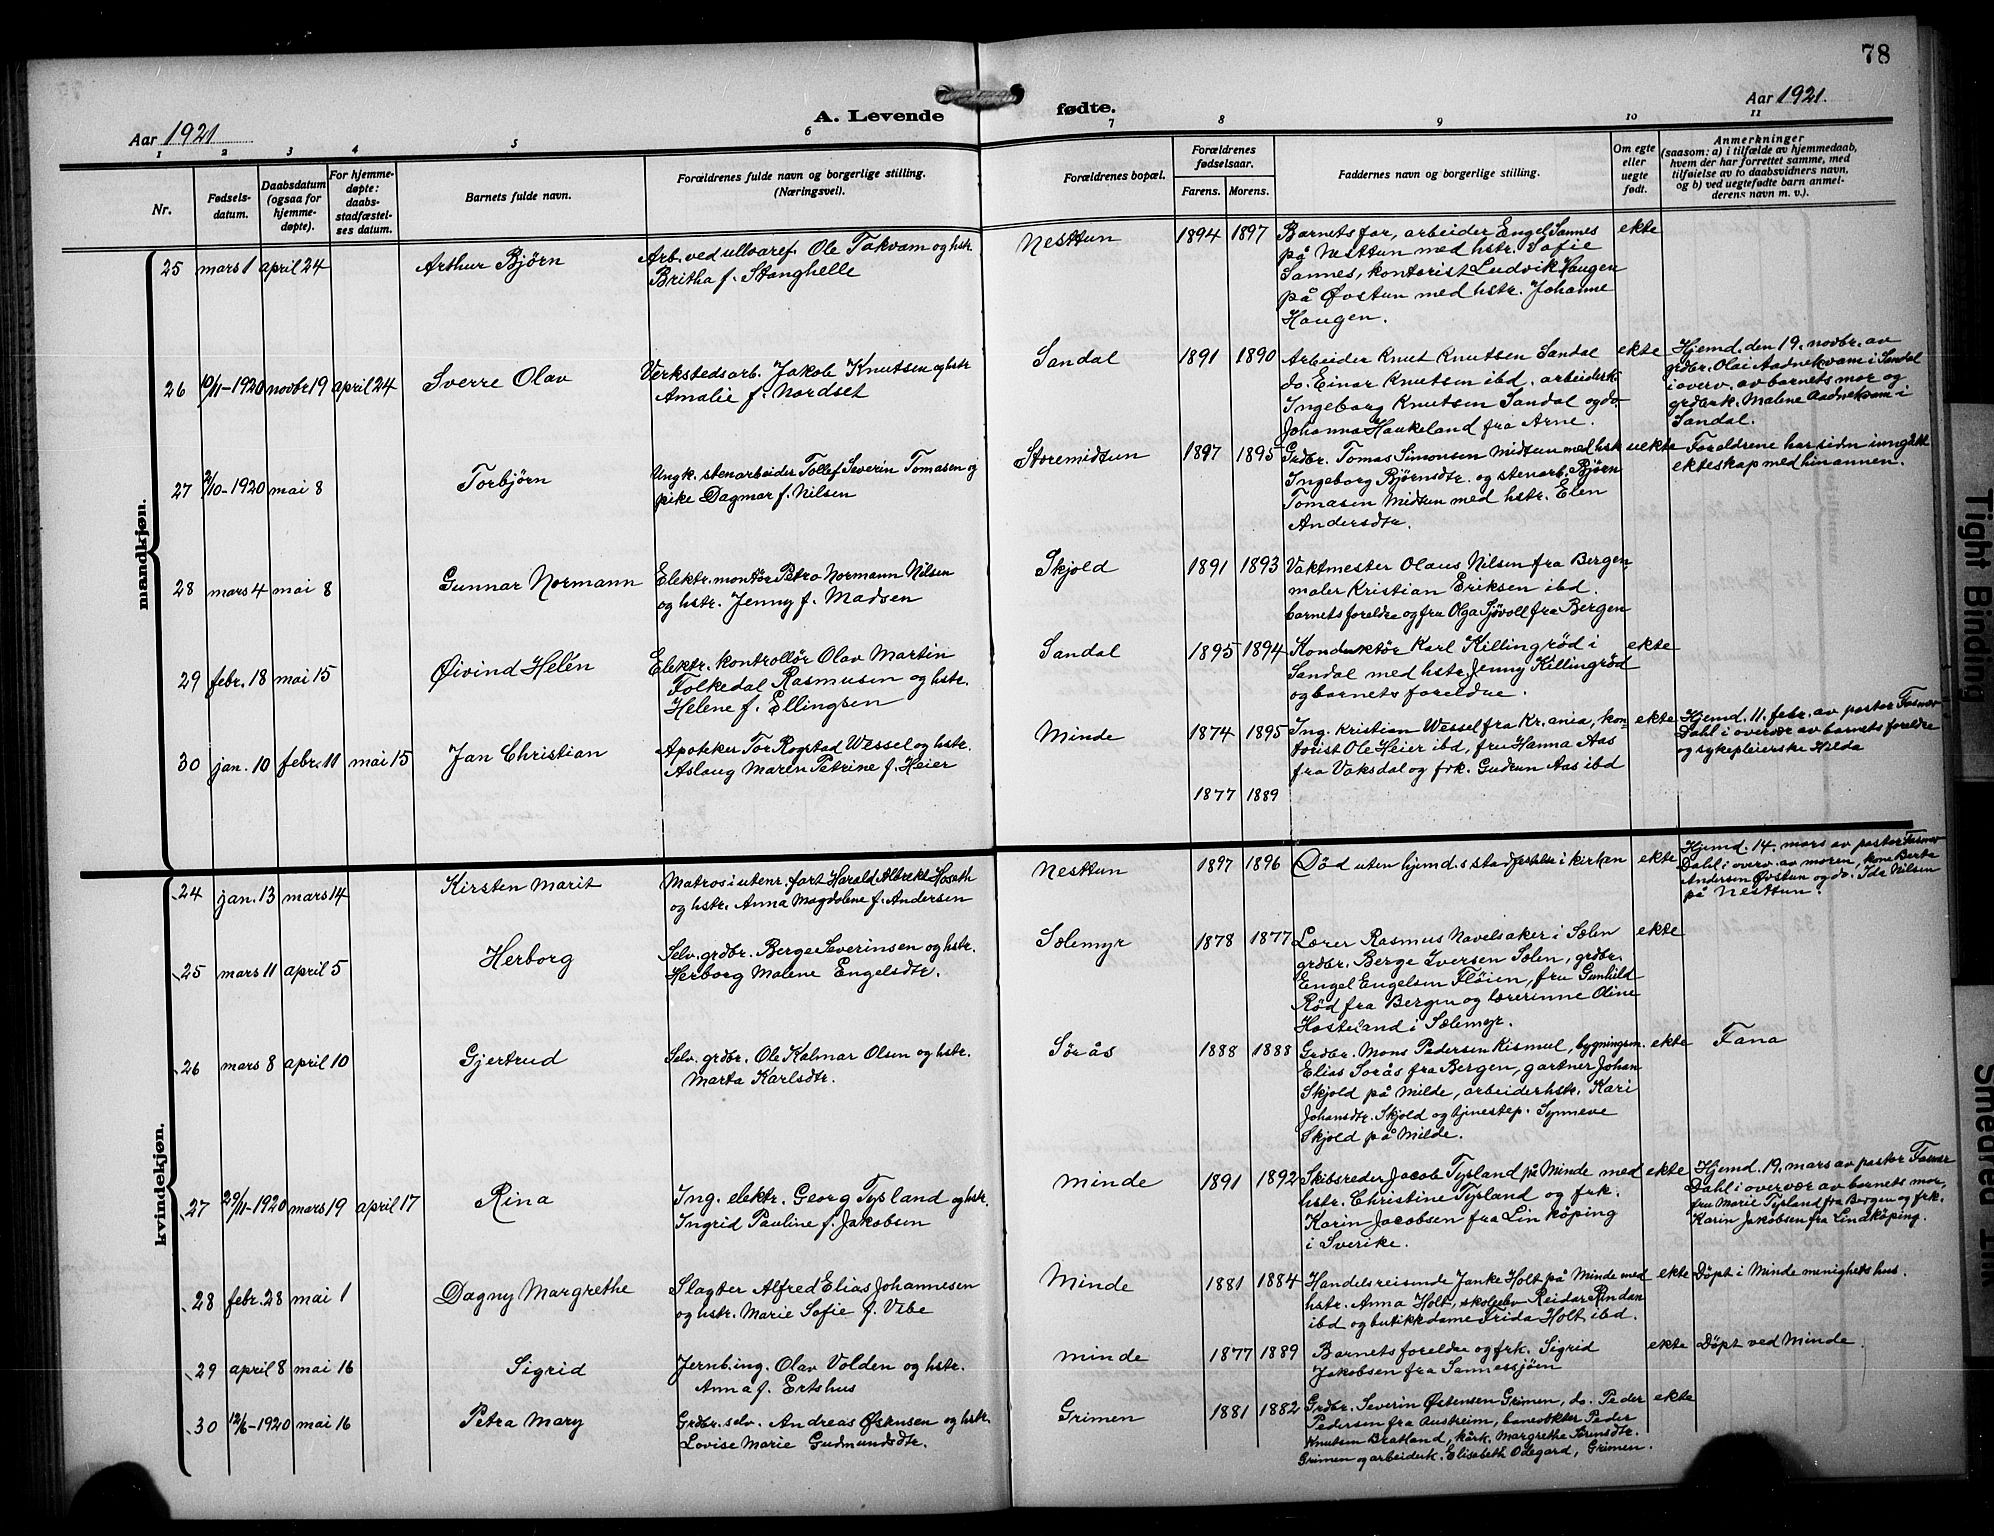 78
A. Levende fødte.
Aar 1921
Aar 1921.
1 2 3 4 5 6 7 8 9 10 11
Nr.
Fødsels-
datum.
Daabsdatum
(ogsaa for
hjemme-
døpte).
For hjemme-
døpte:
daabs-
stadfæstel-
ses datum.
Barnets fulde navn.
Forældrenes fulde navn og borgerlige stilling.
(Næringsvei).
Forældrenes bopæl.
Forældrenes
fødselsaar.
Farens. Morens.
Faddernes navn og borgerlige stilling.
Om egte
eller
uegte
født.
Anmerkninger
(saasom: a) i tilfælde av hjemmedaab,
hvem der har forrettet samme, med
tilføielse av to daabsvidners navn,
og b) ved uegtefødte barn anmel-
derens navn m. v.).
mandkjøn.
25 mars 1 april 24 Arthur Bjørn
Arb. ved ullvaref. Ole Takvam og hstr.
Britha f. Stanghelle
Nesttun 1894 1897
Barnets far, arbeider Engel Sannes
på Nesttun med hstr. Sofie
Sannes, kontorist Ludvik Haugen
på Øvstun med hstr. Johanne
Haugen.
ekte
26 10/11-1920 novbr. 19 april 24 Sverre Olav
Verkstedsarb. Jakob Knutsen og hstr
Amalie f. Nordset
Sandal 1891 1890
Arbeider Knut Knutsen Sandal
do. Einar Knutsen ibd. arbeidersk.
Ingeborg Knutsen Sandal og do.
Johanna Haukeland fra Arne.
ekte
Hjemd. den 19. novbr. av
grdbr. Olai Aadnekvam i Sandal
i overv. av barnets mor og
grdbrk. Malene Aadnekvam i
Sandal.
27 2/10-1920 mai 8 Torbjørn
Ungk. stenarbeider Tollef Severin Tomasen og
pike Dagmar f. Nilsen
Storemidtun 1897 1895
Grdbr. Tomas Simonsen Midtun med hsk
Ingeborg Bjørnsdtr. og stenarb. Bjørn
Tomasen Midtun med hstr. Elen
Andersdtr.
uekte
Foreldrene har sidn inngått
ekteskap med hinannen.
28 mars 4 mai 8 Gunnar Normann
Elektr. montør Petro Normann Nilsen
og hstr. Jenny f. Madsen
Skjold 1891 1893
Vaktmester Olaus Nilsen fra Bergen
maler Kristian Eriksen ibd.
barnets foreldre og fru Olga Sjøvoll fra Bergen
29 febr. 18 mai 15 Øivind Helén
Elektr. kontrollør Olav Martin
Folkedal Rasmusen og hstr.
Helene f. Ellingsen
Sandal 1895 1894
Konduktør Karl Killingrød i
Sandal med hstr. Jenny Killingrød
og barnets foreldre.
ekte
30 jan. 10 febr. 11 mai 15 Jan Christian
Apoteker Tor Rogstad Wessel og hstr.
Aslaug Maren Petrine f. Heier
Minde 1874 1895
Ing. Kristian Wessel fra Kr.ania, kon-
torist Ole Heier ibd, fru Hanna Aas
fra Vaksdal og frk. Gudrun Aas ibd
ekte
Hjemd. 11. febr. av pastor Fasmer
Dahl i overvær av barnets foreldre
og sykepleierske Hilda
1877 1889
kvindekjøn.
24 jan. 13 mars 14 Kirsten Marit
Matros i utenr. fart Harald Albrekt Hoseth
og hstr. Anna Magdolene f. Andersen
Nesttun 1897 1896
Død uten hjemd.s stadfestelse i kirken
ekte
Hjemd. 14. mars av pastor Fasmer
Dahl i overv. av moren, kone Berta
Andersen Øvstun og do. Ida Nilsen
på Nesttun.
25 mars 11 april 5 Herborg
Selv. grdbr. Berge Severinsen og hstr.
Herborg Malene Engelsdtr.
Sælemyr 1878 1877
Lærer Rasmus Navelsaker i Sælen
grdbr. Berge Iversen Sælen, grdbr.
Engel Engelsen Fløien, fru Gunhild
Rød fra Bergen og lærerinne Oline
Hosteland i Sælemyr.
ekte
26 mars 8 april 10 Gjertrud
Selv. grdbr. Ole Kalmar Olsen og hstr.
Marta Karlsdtr.
Sørås 1888 1888
Grdbr. Mons Pedersen Kismul, bygningsm.
Elias Sorås fra Bergen, gartner Johan
Skjold på Milde, arbeiderhstr. Kari
Johansdtr. Skjold og tjenestep. Synneve
Skjold på Milde.
ekte
Fana
27 29/11-1920 mars 19 april 17 Rina
Ing. elektr. Georg Tysland og hstr.
Ingrid Pauline f. Jakobsen
Minde 1891 1892
Skibsreder Jacob Tysland på Minde med
hstr. Christine Tysland og frk.
Karin Jacobsen fra Linköping
i Sverike.
ekte
Hjemd. 19. mars av pastor Fasmer
Dahl i overvær av barnets mor,
fru Marie Tysland fra Bergen og frk.
Karin Jakobsen fra Lindköping.
28 febr. 28 mai 1 Dagny Margrethe
Slagter Alfred Elias Johannesen
og hstr. Marie Sofie f. Vibe
Minde 1881 1884
Handelsreisende Janke Holt på Minde med
hstr. Anna Holt, skoleelev Reidar Rindan
ibd og butikkdame Frida Holt ibd.
ekte
Døpt i Minde menighetshus.
29 april 8 mai 16 Sigrid
Jernb. ing. Olav Volden og hstr.
Anna f. Ertshus
Minde 1877 1889
Barnets foreldre og frk. Sigrid
Jakobsen fra Sannessjøen
ekte
Døpt ved Minde
30 12/6-1920 mai 16 Petra Mary
Grdbr. selv. Andreas Østensen og hstr.
Lovise Marie Gudmundsdtr.
Grimen 1881 1882
Grdbr. Severin Østensen Grimen, do. Peder
Pedersen fra Austreim, banevokter Peder
Knutsen Bratland, kårk. Margrethe
Grimen og arbeiderk. Elisabeth Ødegard, Grimen.
ekte
Tight Binding
Smeared Ink